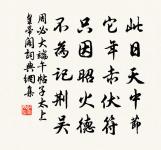 此日天中節
它年赤伏符
只因昭火德
不為記荊吳
周必大端午帖子太上
皇帝閣詞典網集